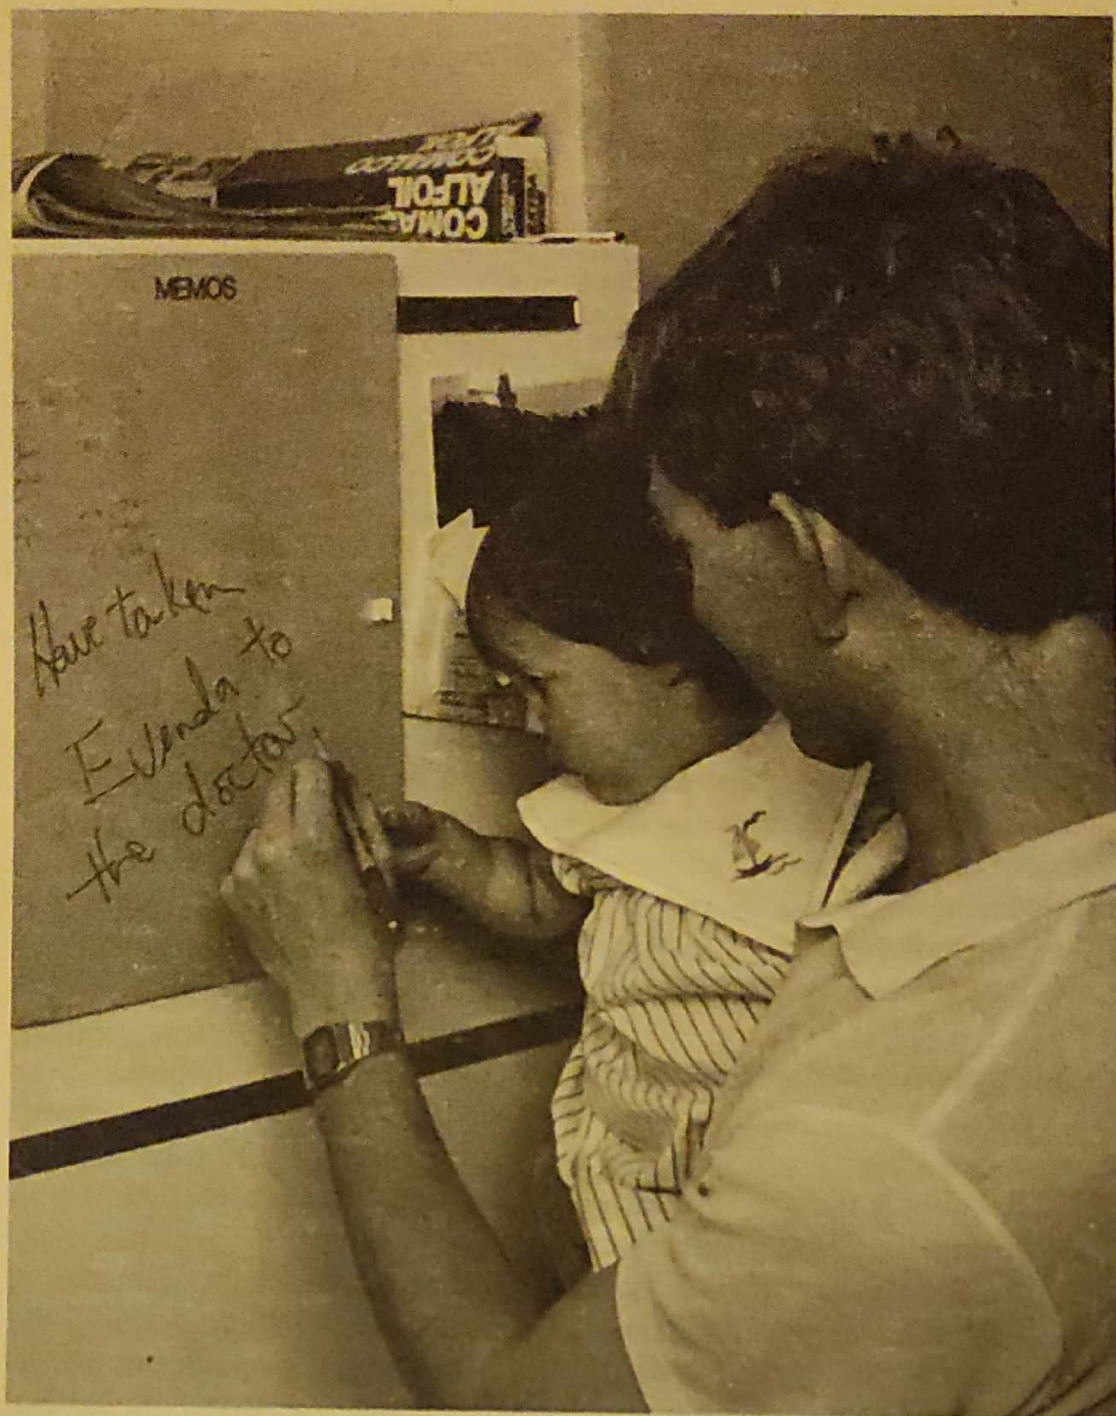 COMALCO
ALFOIL
COMA
ALFOIL
MEMOS
Have taken
Evenda to
the doctor,